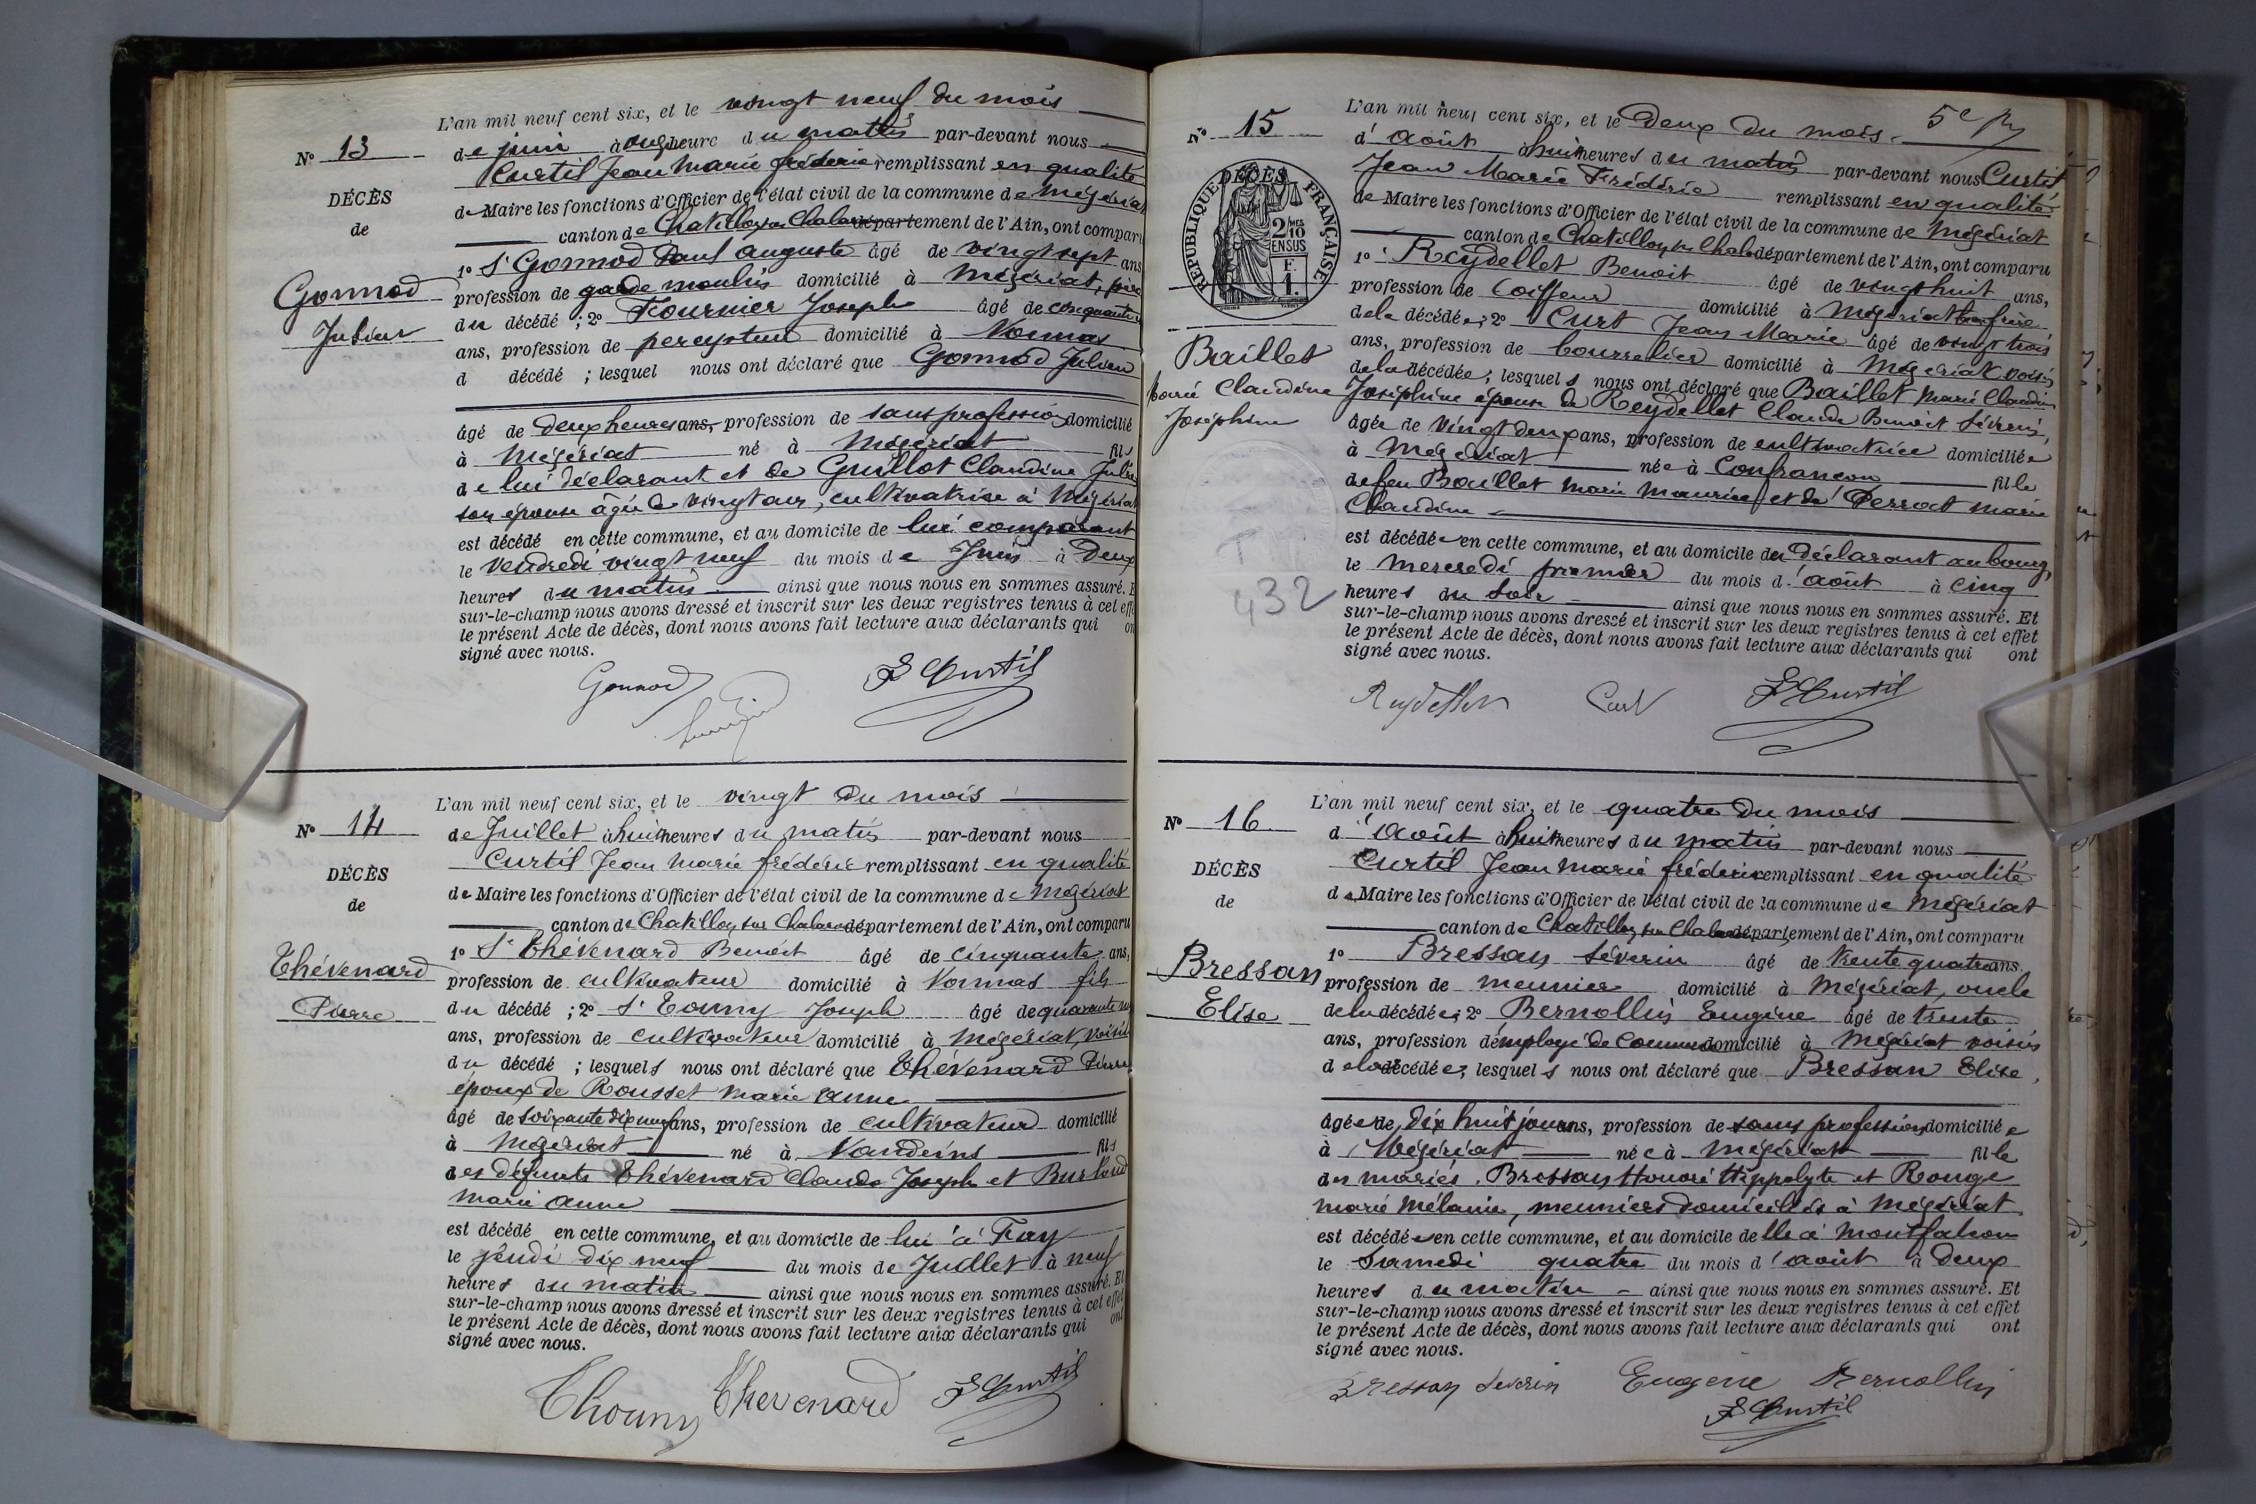 L'an mil neuf cent six, et le vingt neuf du mois
Nº 13
de juin à onze heure du matin par-devant nous
Curtil Jean Marie frédéric remplissant en qualité
DÉCÈS
de Maire les fonctions d'Officier de l'état civil de la commune de Mézériat
de
canton de Chatillon sur Chalar département de l'Ain, ont comparu
1º Sr Gonnod Paul Auguste âgé de vingt sept ans
Gonnod
profession de garde moulin domicilié à Mézériat, père
Julien
du décédé ; 2º Fournier Joseph âgé de cinquante
ans, profession de percepteur domicilié à Vonnas
d décédé ; lesquel nous ont déclaré que Gonnod Julien
âgé de deux heures ans, profession de sans profession domicilié
à Mézériat né à Mézériat fils
de lui déclarant et de Guillot Claudine Julie
son épouse âgée de vingt ans, cultivatrice à Mézériat
est décédé en cette commune, et au domicile de lui comparant
le vendredi vingt neuf du mois de Juin à deux
heures du matin ainsi que nous nous en sommes assuré. E
sur-le-champ nous avons dressé et inscrit sur les deux registres tenus à cet effe
le présent Acte de décès, dont nous avons fait lecture aux déclarants qui on
signé avec nous.
Gonnod F Curtil
L'an mil neuf cent six, et le vingt du mois
Nº 14
de Juillet à huit heures du matin par-devant nous
Curtil Jean Marie frédéric remplissant en qualité
DÉCÈS
de Maire les fonctions d'Officier de l'état civil de la commune de Mézériat
de
canton de Chatillon sur Chalar département de l'Ain, ont comparu
1º Sr Thévenard Benoit âgé de cinquante ans,
Thévenard
profession de cultivateur domicilié à Vonnas fils
Pierre
du décédé ; 2º Sr Touny Joseph âgé de quarante
ans, profession de cultivateur domicilié à Mézériat, voisin
du décédé ; lesquels nous ont déclaré que Thévenard Pierre
époux de Rousset Marie Anne
âgé de soixante dix neuf ans, profession de cultivateur domicilié
à Mézériat né à Vandeins fils
des défunts Thévenard Claude Joseph et Burtaud
marie anne
est décédé en cette commune, et au domicile de lui à Fay
le jeudi dix neuf du mois de Juillet à neuf
heures du matin ainsi que nous nous en sommes assuré. Et
sur-le-champ nous avons dressé et inscrit sur les deux registres tenus à cet effet
le présent Acte de décès, dont nous avons fait lecture aux déclarants qui ont
signé avec nous.
Thouny Thevenard F Curtil
5e
L'an mil neuf cent six, et le Deux du mois
Nº 15
d'août à huit heures du matin par-devant nous Curtil
Jean Marie Frédéric remplissant en qualité
DÉCÈS
RÉPUBLIQUE FRANÇAISE
2/10 EN SUS
F. 1.
de Maire les fonctions d'Officier de l'état civil de la commune de Mézériat
canton de Chatillon sur Chal département de l'Ain, ont comparu
1º Reydellet Benoit âgé de vingt huit ans,
profession de Coiffeur domicilié à Mézériat beau frère
de la décédée ; 2º Curt Jean Marie âgé de vingt trois
Baillet
ans, profession de bourrelier domicilié à Mézériat voisin
de la décédée ; lesquels nous ont déclaré que Baillet Marie Claudine
Marie Claudine
Joséphine
Joséphine épouse de Reydellet Claude Benoit Séverin,
âgée de vingt deux ans, profession de cultivatrice domiciliée
à Mézériat née à Confrançon fille
de feu Baillet Marie Maurice et de Perrat Marie
Claudine
est décédée en cette commune, et au domicile du déclarant au bourg,
le mercredi premier du mois d'août à cinq
heures du soir ainsi que nous nous en sommes assuré. Et
sur-le-champ nous avons dressé et inscrit sur les deux registres tenus à cet effet
le présent Acte de décès, dont nous avons fait lecture aux déclarants qui ont
signé avec nous.
432
Reydellet Curt F Curtil
L'an mil neuf cent six, et le quatre du mois
Nº 16
d'août à huit heures du matin par-devant nous
Curtil Jean Marie frédéric remplissant en qualité
DÉCÈS
de Maire les fonctions d'Officier de l'état civil de la commune de Mézériat
de
canton de Chatillon sur Chalar département de l'Ain, ont comparu
1º Bressan Séverin âgé de trente quatre ans
Bressan
profession de meunier domicilié à Mézériat, oncle
Elise
de la décédée ; 2º Bernollin Eugène âgé de trente
ans, profession d'employé de Commerce domicilié à Mézériat voisin
de la décédée ; lesquels nous ont déclaré que Bressan Elise,
âgée de dix huit jours ans, profession de sans profession domiciliée
à Mézériat née à Mézériat fille
des mariés Bressan Honoré Hippolyte et Rouge
marie Mélanie, meuniers domiciliés à Mézériat
est décédée en cette commune, et au domicile de lle à Montfalcon
le Samedi quatre du mois d'août à deux
heures du matin ainsi que nous nous en sommes assuré. Et
sur-le-champ nous avons dressé et inscrit sur les deux registres tenus à cet effet
le présent Acte de décès, dont nous avons fait lecture aux déclarants qui ont
signé avec nous.
Bressan Severin Eugène Bernollin
F Curtil